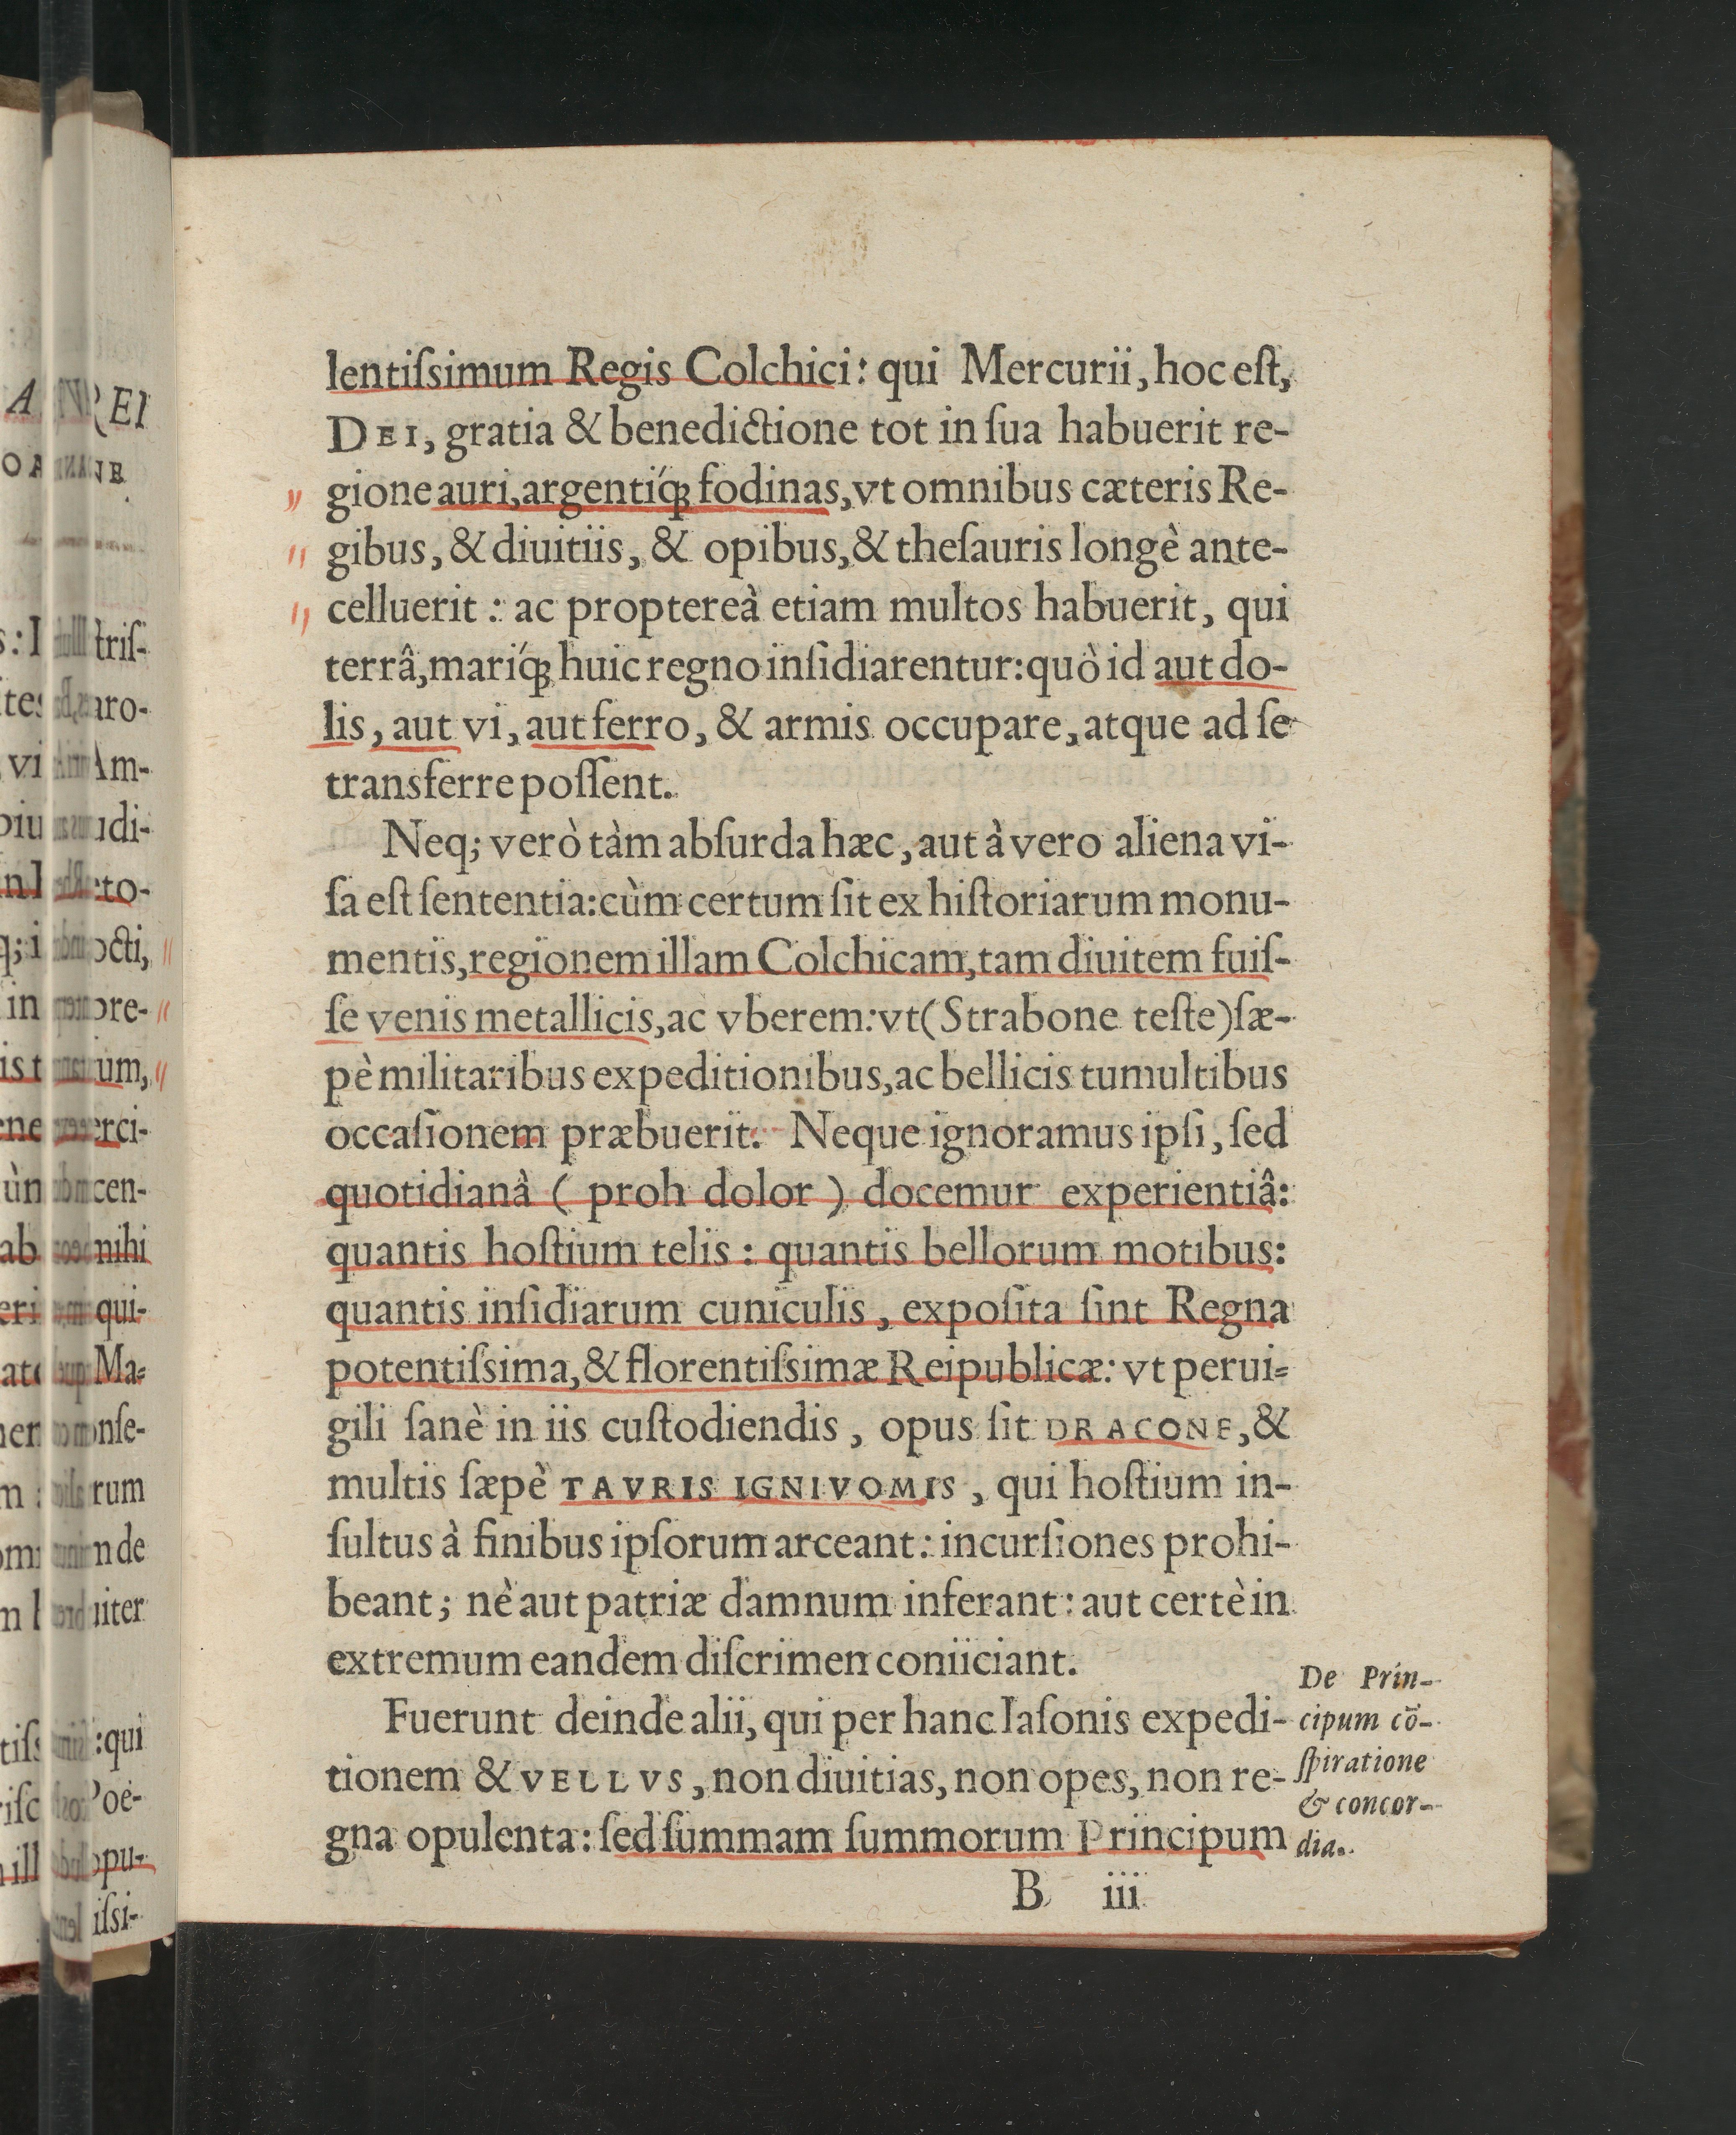 lentiſsimum Regis Colchici: qui Mercurii, hoc eſt,
DEI, gratia & benedictione tot in ſua habuerit re-
gione auri, argentíq; fodinas, vt omnibus cæteris Re-
gibus, & diuitiis, & opibus, & theſauris longè ante-
celluerit: ac proptereà etiam multos habuerit, qui
terrâ, maríq; huic regno inſidiarentur: quò id aut do-
lis, aut vi, aut ferro, & armis occupare, atque ad ſe
transferre poſſent.
Neq; verò tàm abſurda hæc, aut à vero aliena vi-
ſa eſt ſententia: cùm certum ſit ex hiſtoriarum monu-
mentis, regionem illam Colchicam, tam diuitem fuiſ-
ſe venis metallicis, ac vberem: vt (Strabone teſte) ſæ-
pè militaribus expeditionibus, ac bellicis tumultibus
occaſionem præbuerit. Neque ignoramus ipſi, ſed
quotidianâ (proh dolor) docemur experientiâ:
quantis hoſtium telis: quantis bellorum motibus:
quantis inſidiarum cuniculis, expoſita ſint Regna
potentiſsima, & florentiſsimæ Reipublicæ: vt perui-
gili ſanè in iis cuſtodiendis, opus ſit DRACONE, &
multis ſæpè TAVRIS IGNIVOMIS, qui hoſtium in-
ſultus à finibus ipſorum arceant: incurſiones prohi-
beant; nè aut patriæ damnum inferant: aut certè in
extremum eandem diſcrimen coniiciant.
Fuerunt deinde alii, qui per hanc Iaſonis expedi-
tionem & VELLVS, non diuitias, non opes, non re-
gna opulenta: ſed ſummam ſummorum Principum
De Prin-
cipum cō-
ſpiratione
& concor-
dia.
B iii